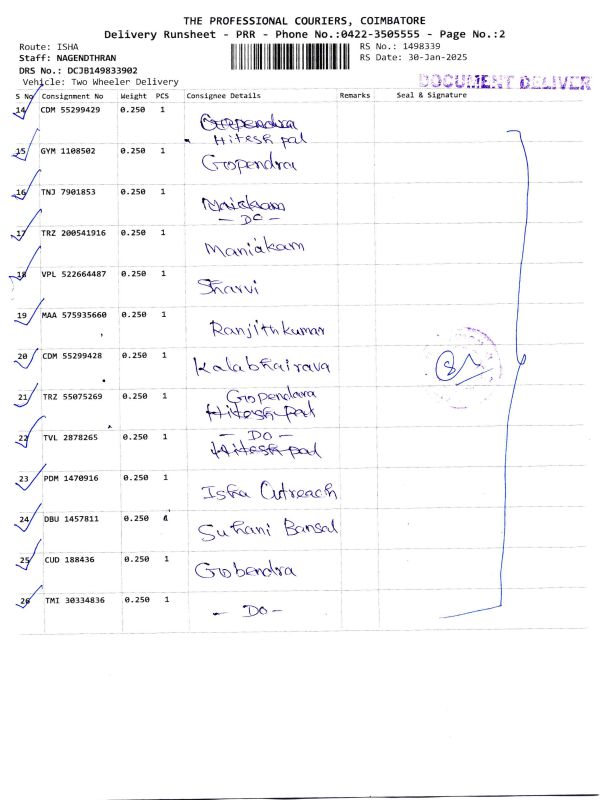 THE PROFESSIONAL COURIERS, COIMBATORE
Delivery Runsheet - PRR - Phone No.:0422-3505555 - Page No.:2
Route: ISHA RS No.: 1498339
Staff: NAGENDTHRAN RS Date: 30-Jan-2025
DRS No.: DCJB149833902
DOCUMENT DELIVER
Vehicle: Two Wheeler Delivery
S No Consignment No Weight PCS Consignee Details Remarks Seal & Signature
14 CDM 55299429 0.250 1 Gopendra
Hitesh pal
15 GYM 1108502 0.250 1 Gopendra
16 TNJ 7901853 0.250 1
- DO -
17 TRZ 200541916 0.250 1 Maniakam
18 VPL 522664487 0.250 1 Sharvi
19 MAA 575935660 0.250 1 Ranjithkumar
20 CDM 55299428 0.250 1 Kalabhairava
21 TRZ 55075269 0.250 1 Gopendara
Hitesh pal
22 TVL 2878265 0.250 1 - DO -
Hitesh pal
23 PDM 1470916 0.250 1 Isha Outreach
24 DBU 1457811 0.250 1 Suhani Bansal
25 CUD 188436 0.250 1 Gobendra
26 TMI 30334836 0.250 1 - DO -